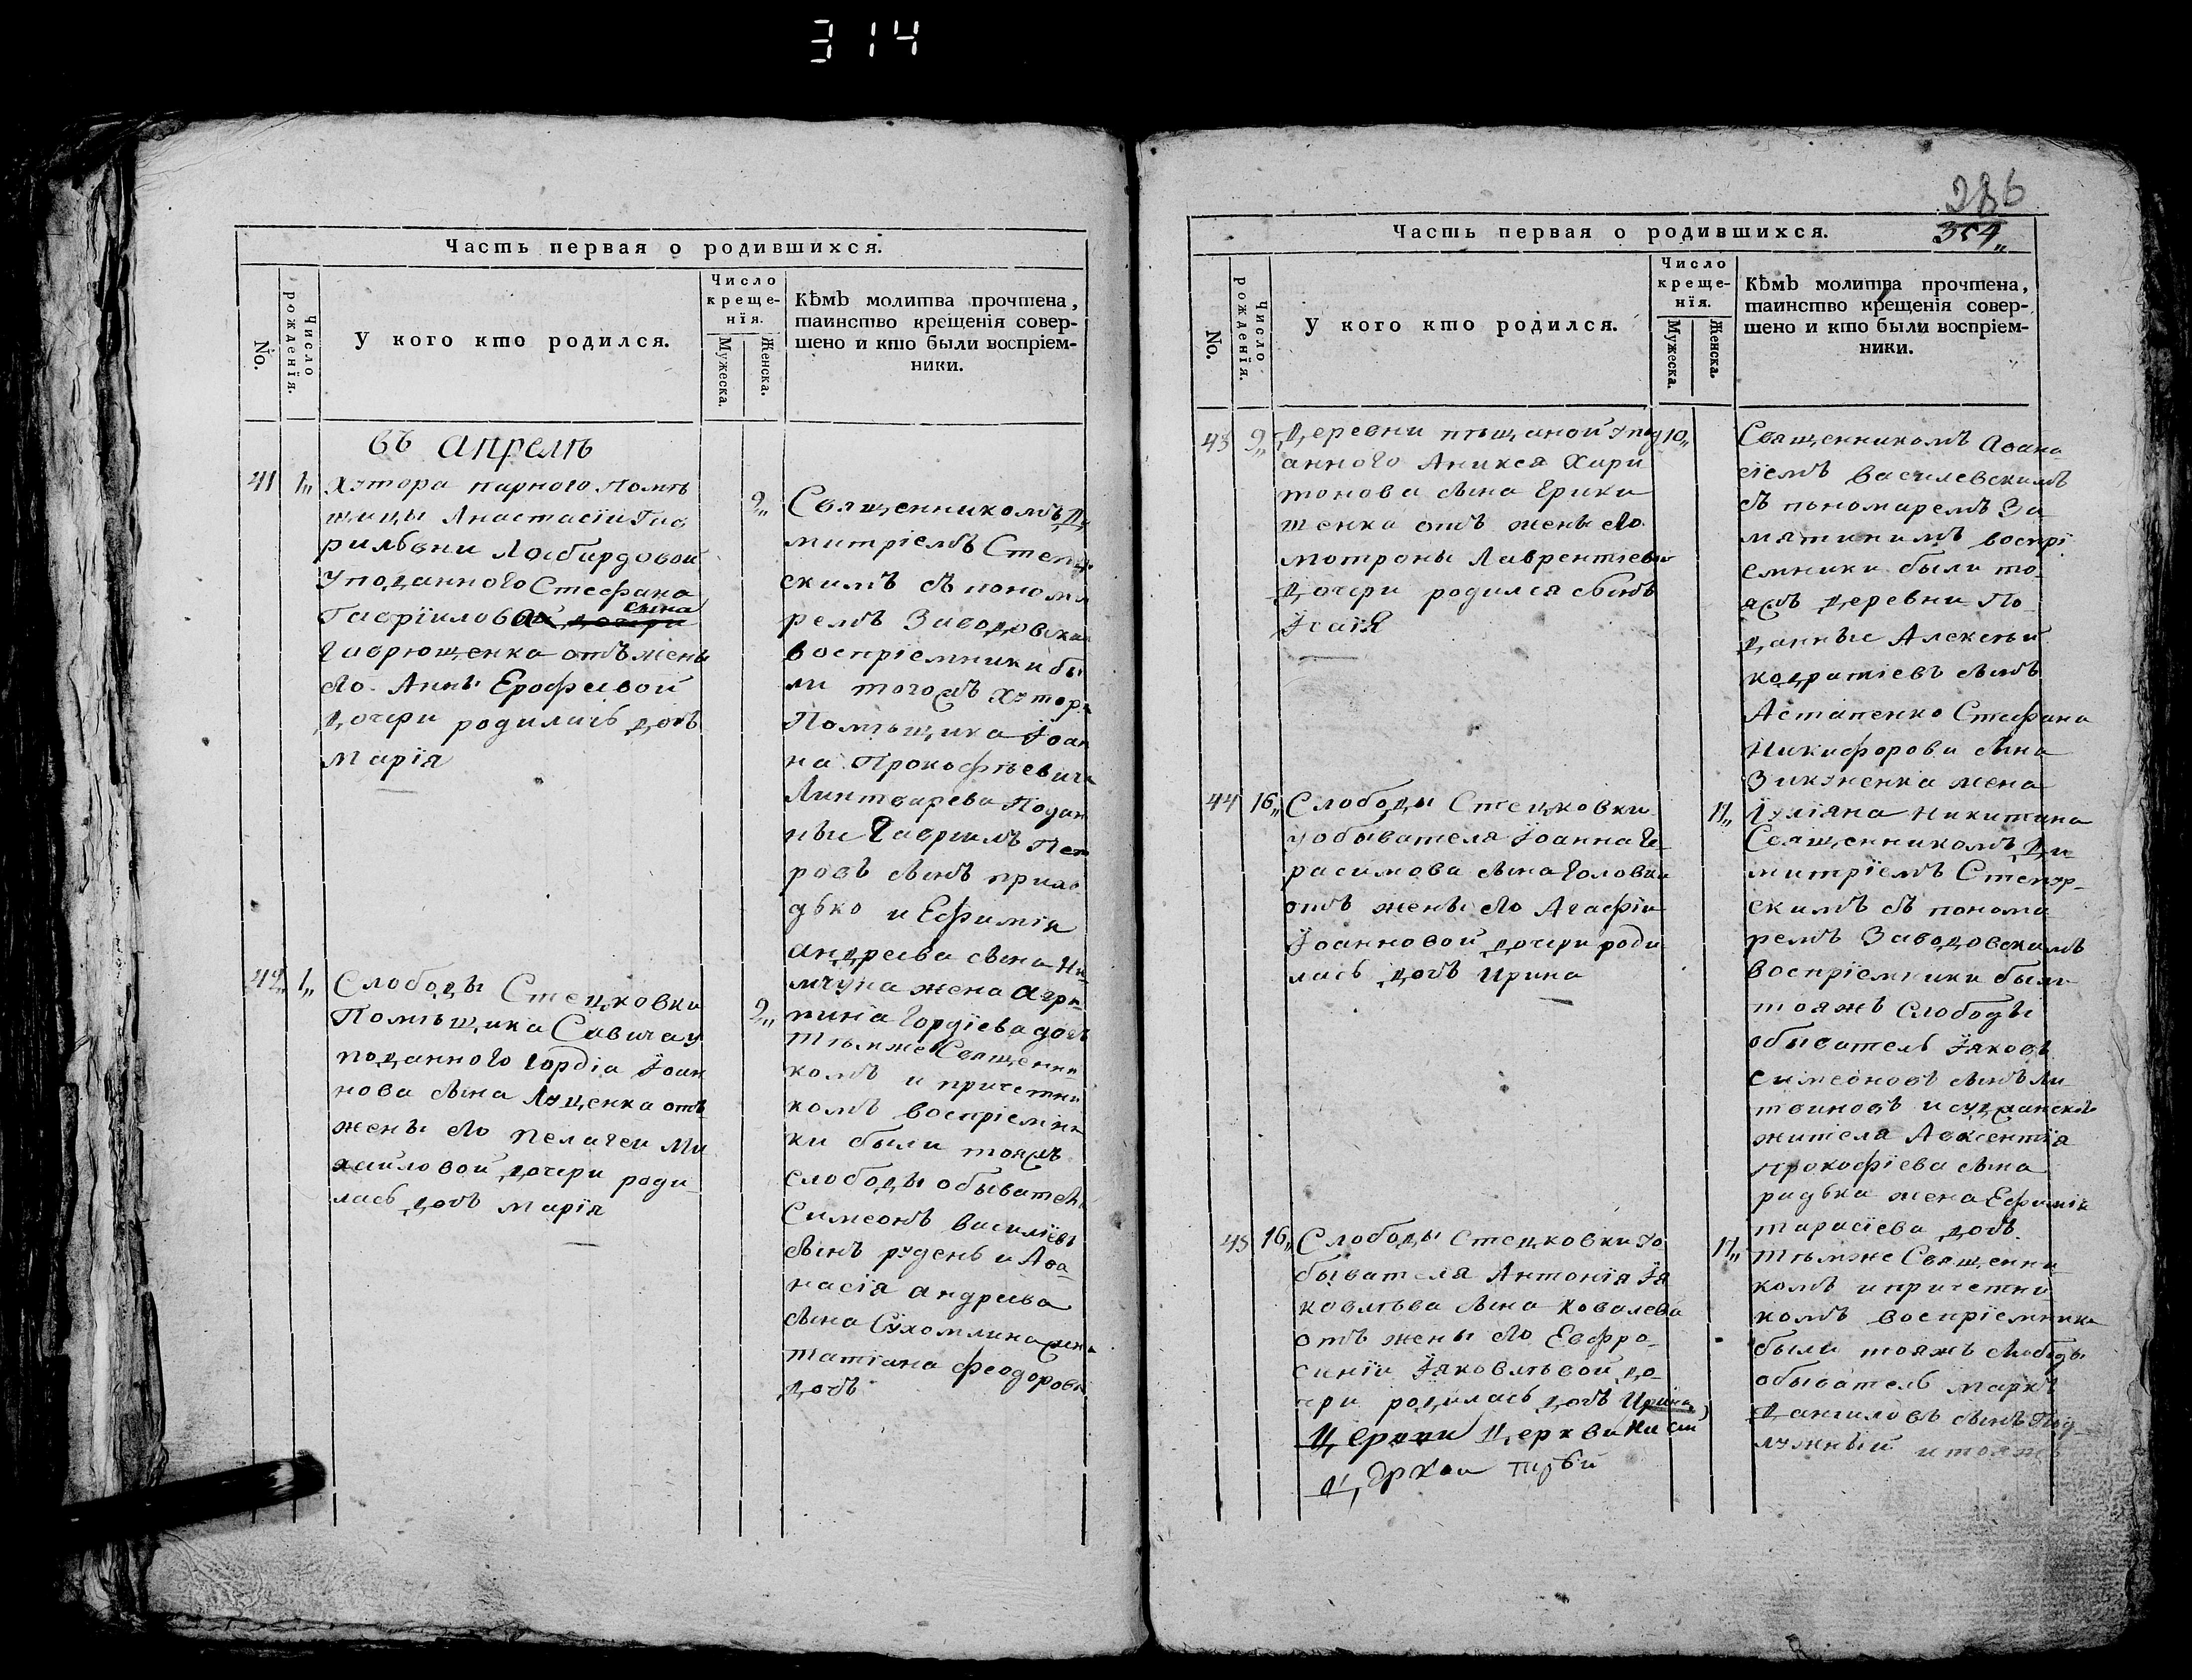 314
Часть первая о родившихся.
No.
Число рожденїя.
У кого кто родился.
Число
креще-
нїя.
Мужеска.
Женска.
Кѣмъ молитва прочтена,
таинство крещенія совер-
шено и кто были воспріем-
ники.
въ апрелѣ
41 1,,
Хутора парного Помѣ
щицы Анастасіи Гав
рильвни
уподанного Стефана
сына
Гавріилова
Гаврющенка отъ жены
его Анны Ерофѣевой
дочери родилась дочъ
Марїя
2,,
Священникомъ Ди
митріемъ
скимъ съ понома
ремъ Заводовски
воспріемники бы
ли тогожъ Хутора
Помѣщика Іоан
на Прокофіевича
Линтварева Подан
ные Гавріилъ Пет
ровъ сынъ прихо
дько и Ефимія
андреева сына
жена агри
пина Гордїева дочъ
42,, 1,,
Слободы Стецковки
Помѣщика Савича у
поданного Гордіа Іоан
нова сына Луценка отъ
жены его Пелагеи Ми
хайловой дочери роди
лась дочъ Марїя
2,,
тѣмже Священни
комъ и причетни
комъ воспріемни
ки были тояжъ
слободы обыватель
Симеонъ Василіевъ
сынъ рудень и Афа
насїя андреева
сына Сухомлина жена
татіана феодорова
дочъ
286
354,,
Часть первая о родившихся.
No.
Число рожденїя.
У кого кто родился.
Число
креще-
нїя.
Мужеска.
Женска.
Кѣмъ молитва прочтена,
таинство крещенія совер-
шено и кто были воспріем-
ники.
43 9,,
Деревни пѣщаной упод
анного Аникея Хари
тонова сына Ерики
шенка отъ жены его
мотроны Лаврентіевы
дочери родился сынъ
Ісаія
10,,
Священникомъ Афана
сіемъ Василевскимъ
съ пономаремъ За
мятинимъ воспрі
емники были то
яжъ деревни По
данные Алексѣй
кодратіевъ сынъ
Астапенко Стефана
Никифорова сына
Зикуненка жена
Іуліяна Никитина
44 16,,
Слободы Стецковки
уобывателя Іоанна Ге
расимова сына Головка
отъ жены его Агафіи
Іоанновой дочери роди
лась дочъ Ирина
17,,
Священникомъ Ди
митрїемъ
скимъ съ понома
ремъ Заводовскимъ
воспріемники были
тояжъ Слободы
обыватель Іяковъ
Симеоновъ сынъ Ли
твиновъ и суджанской
жителя Авксентїя
Прокофїева сына
радька жена Ефимія
тарасїева дочъ
45 16,,
Слободы Стецковки уо
бывателя Антонїя Їя
ковлѣва сына Ковалева
отъ жены его Евфро
синїи Їяковлѣвой до
чери родилась дочъ Ирина
17,,
тѣмже Священни
комъ и причетни
комъ воспрїемники
были тояжъ слободы
обыватель Маркъ
Даниловъ сынъ Под
лужный и тояжъ
Церкви